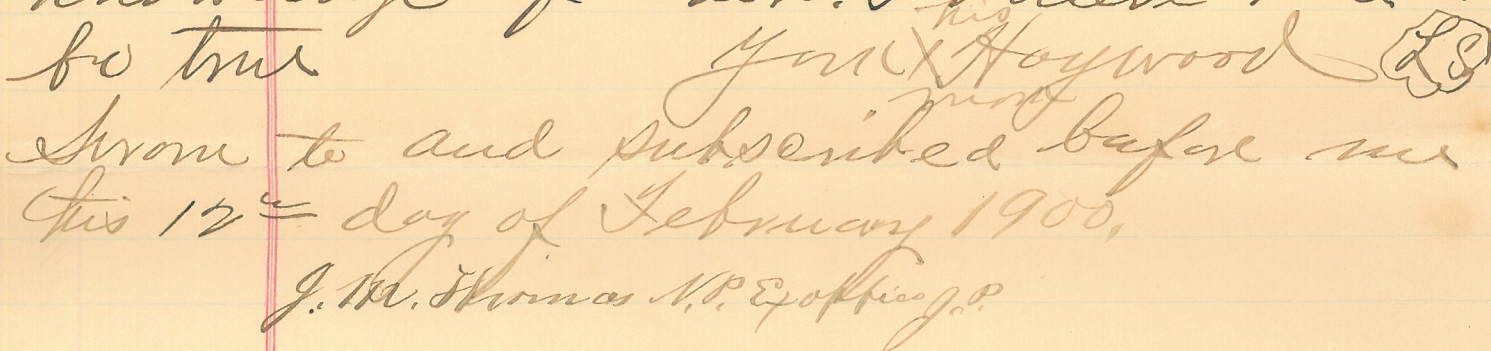 be true York his X mark Haywood LS
Sworn to and subscribed before me
this 12th day of February 1900.
J. M. Thomas N.P. Exofficio J.P.